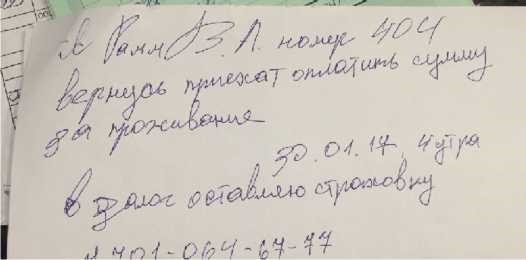 Я Рамм З.Л. номер 404
вернусь приехат оплатить сумму
за проживание
30.01.17, 4 утра
в залог оставляю страховку
701-064-67-77